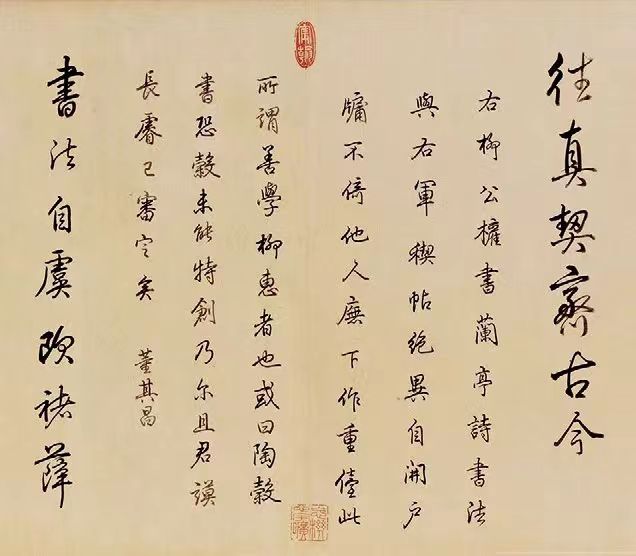 往真契齊古今
右柳公權書蘭亭詩書法
與右軍稧帖絶異自開户
牖不倚他人廡下作重儓此
所謂善學柳惠者也或曰陶榖
書恐榖未能特創乃尔且君謨
長睿已審定矣 董其昌
書法自虞欧褚薛